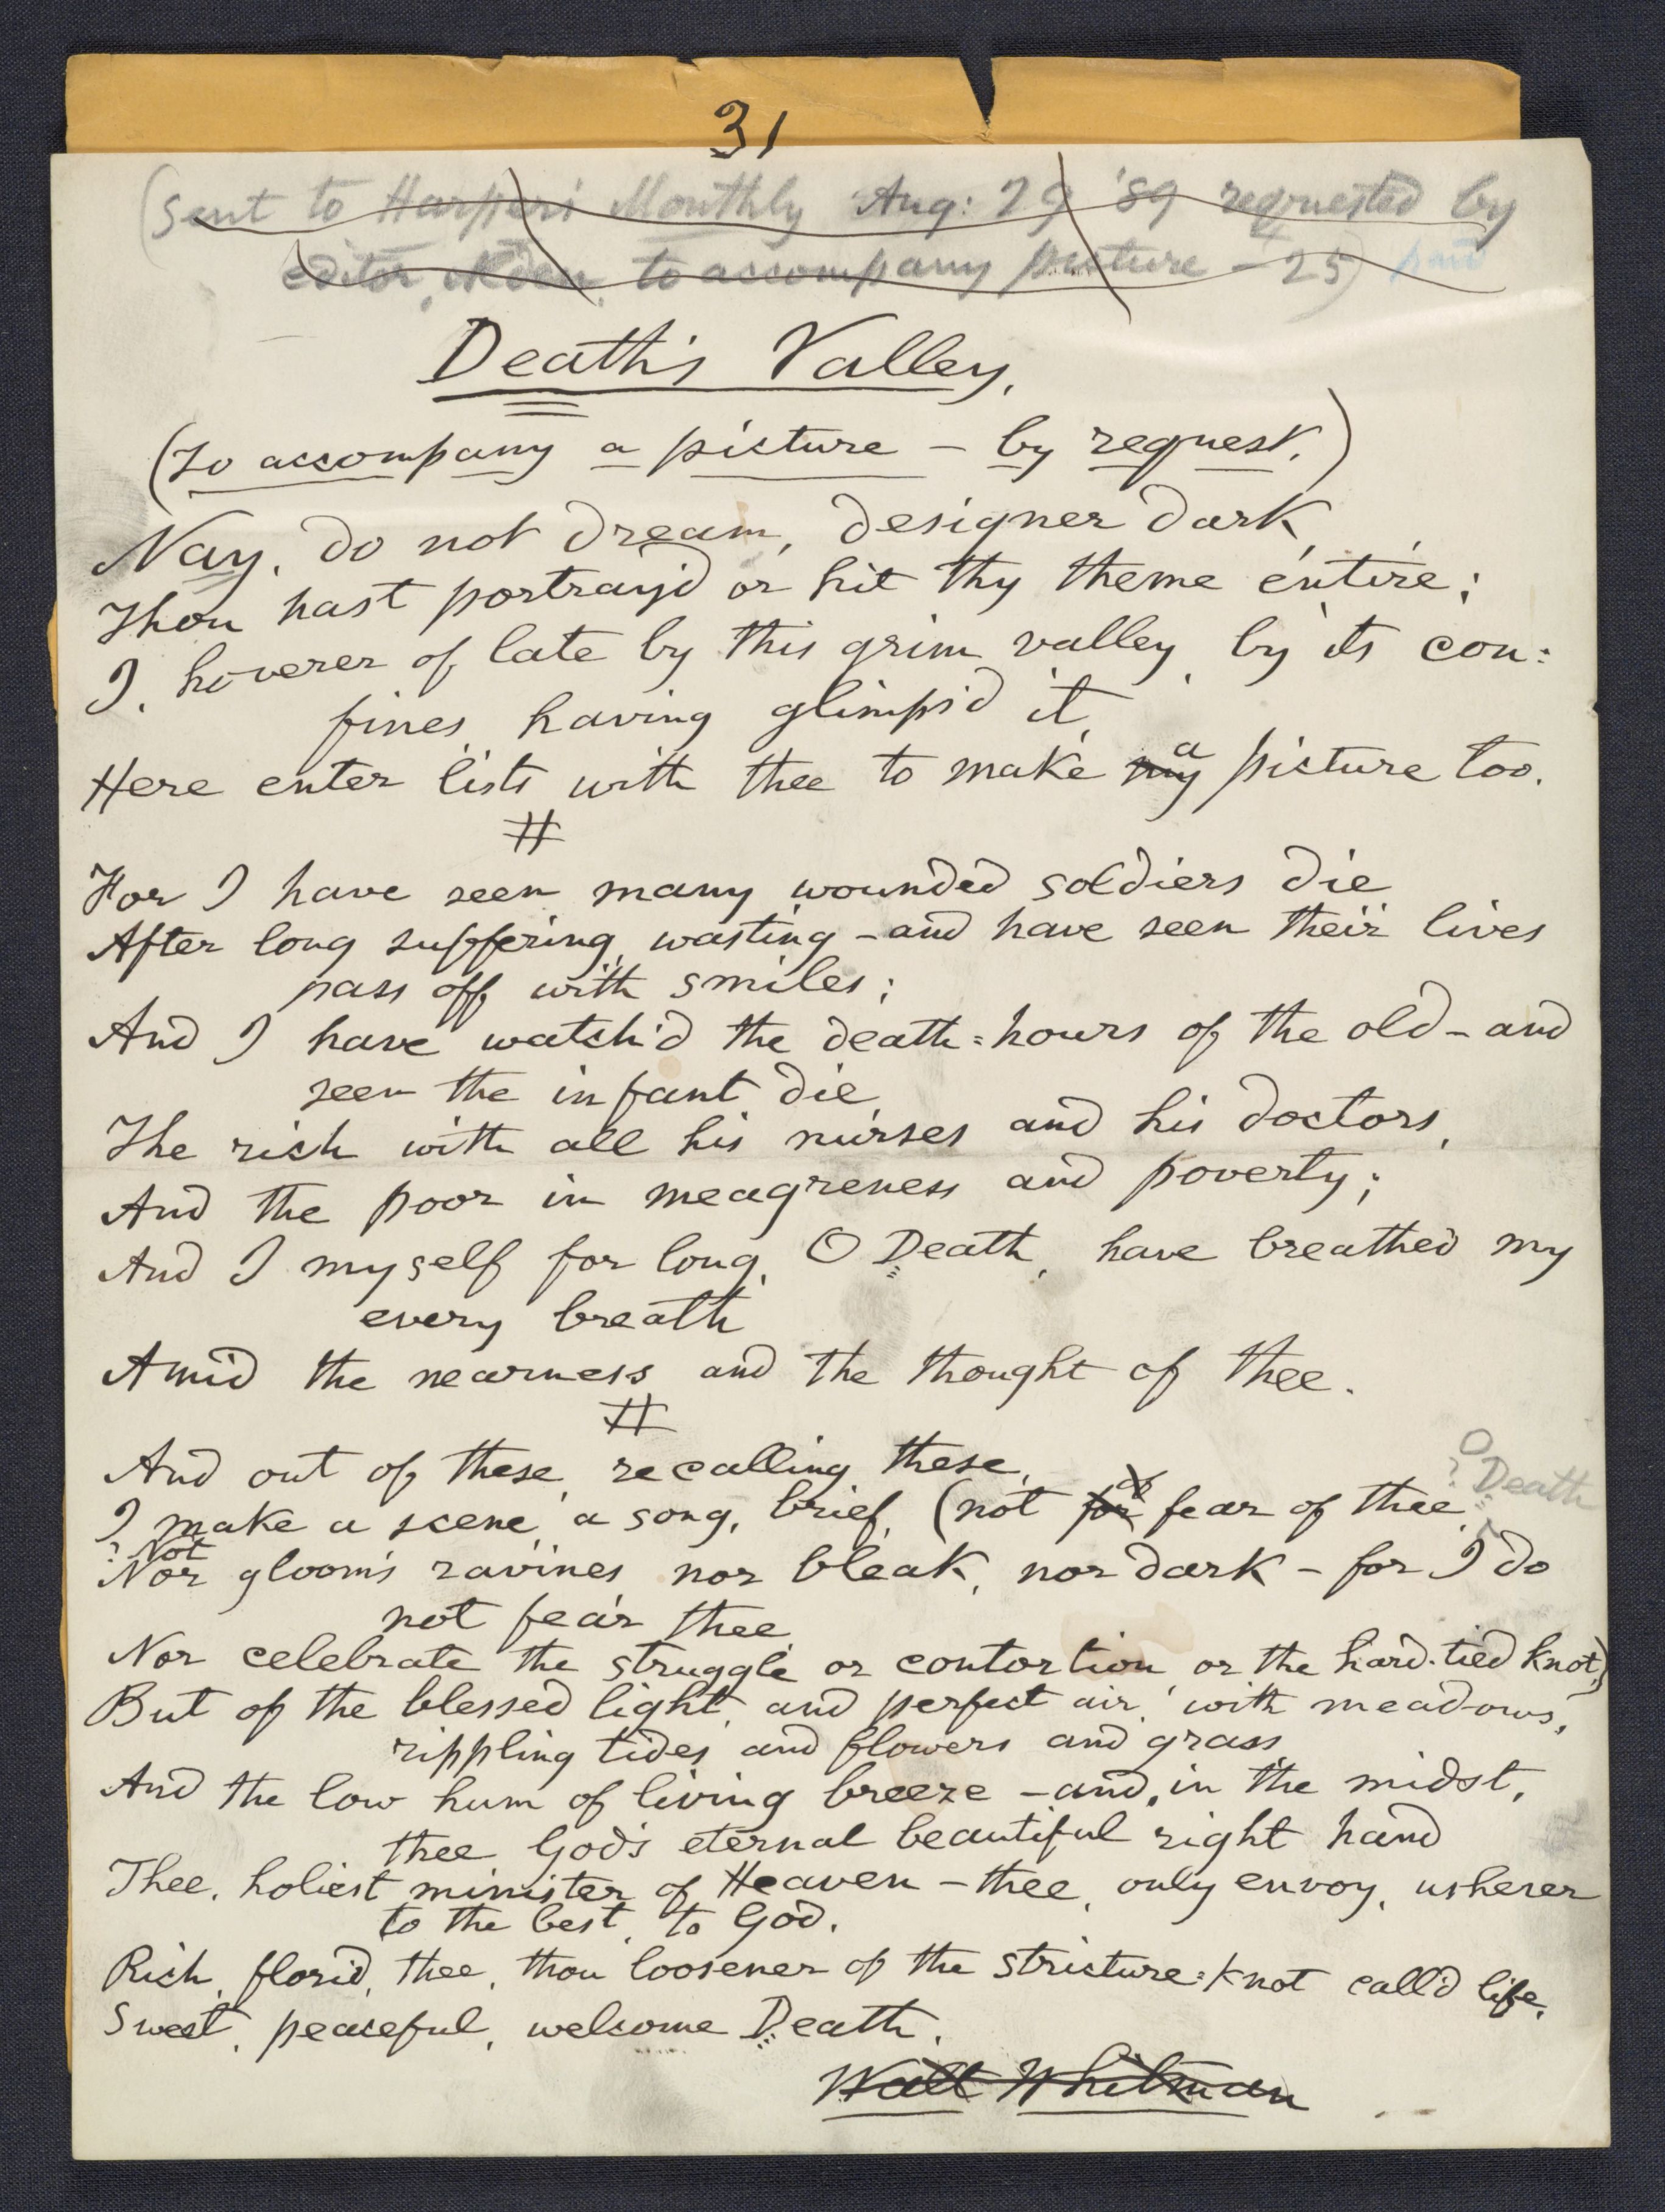 31
(Sent to Harper's Monthly Aug: 29 '89 requested by
editor, Alden, to accompany picture – 25) paid
Death's Valley.
(To accompany a picture – by request.)
Nay, do not dream, designer dark,
Thou hast portray'd or hit thy theme entire;
I, hoverer of late by this grim valley, by its con=
fines having glimps'd it,
Here enter lists with thee to make my a picture too.
#
For I have seen many wounded soldiers die
After long suffering, wasting – and have seen their lives
pass off with smiles;
And I have watch'd the death=hours of the old – and
seen the infant die,
The rich with all his nurses and his doctors,
And the poor in meagreness and poverty;
And I myself for long, O Death, have breathed my
every breath
Amid the nearness and the thought of thee.
#
And out of these, recalling these,
O
? Death
I make a scene, a song, brief, (not for of fear of thee,
? Not
Nor gloom's ravines, nor bleak, nor dark – for I do
not fear thee
Nor celebrate the struggle or contortion, or the hard-tied knot,)
But of the blessed light, and perfect air, with meadows,
rippling tides, and flowers and grass
And the low hum of living breeze – and, in the midst,
thee God's eternal beautiful right hand
Thee, holiest minister of Heaven – thee, only envoy, usherer
to the best, to God.
Rich, florid, thee, thou loosener of the stricture=knot call'd life,
Sweet, peaceful, welcome Death.
Walt Whitman